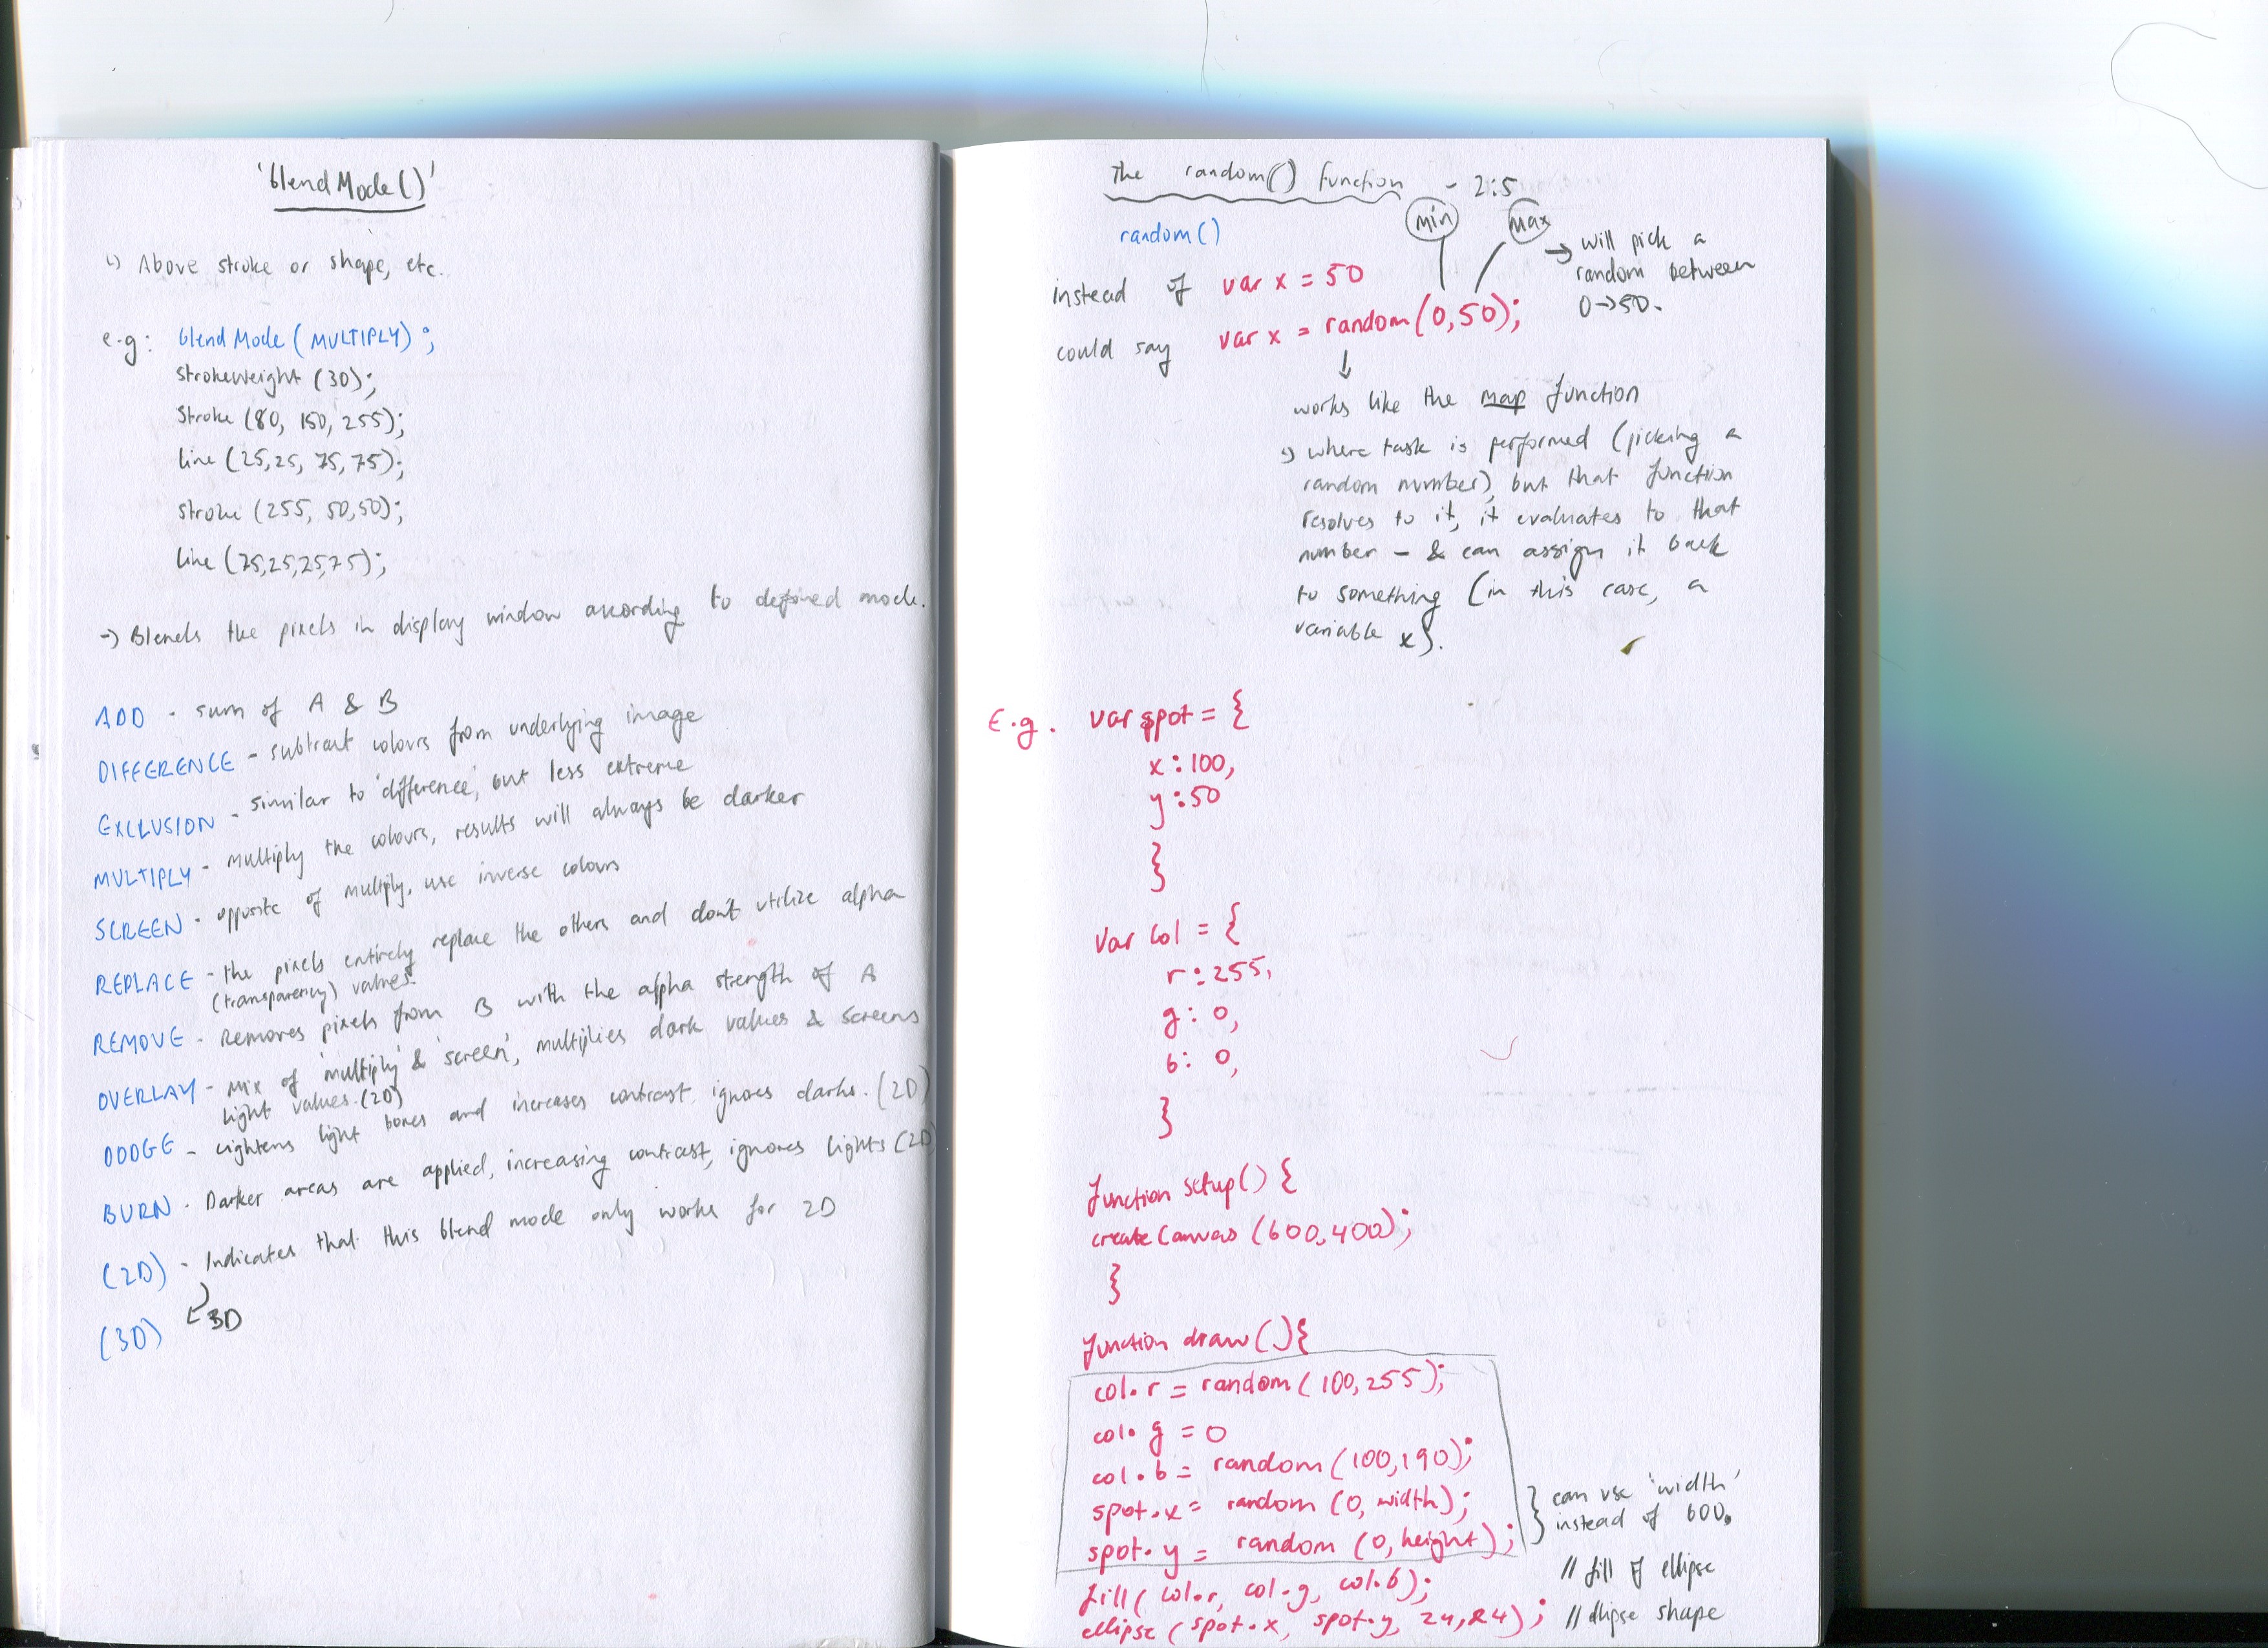 'blendMode()'
↳ Above stroke or shape, etc.
e.g: blendMode (MULTIPLY);
strokeweight (30);
Stroke (80, 150, 255);
line (25,25, 75,75);
stroke (255, 50,50);
line (75,25,25,75);
→ Blends the pixels in display window according to defined mode.
ADD - sum of A & B
DIFFERENCE - subtract colours from underlying image
EXCLUSION - similar to 'difference', but less extreme
MULTIPLY - multiply the colours, results will always be darker
SCREEN - opposite of multiply, use inverse colours
REPLACE - the pixels entirely replace the others and don't utilize alpha
(transparency) values.
REMOVE - Removes pixels from B with the alpha strength of A
OVERLAY - mix of 'multiply' & 'screen', multiplies dark values & screens
light values. (2D)
DODGE - Lightens light tones and increases contrast, ignores darks. (2D)
BURN - Darker areas are applied, increasing contrast, ignores lights (2D)
(2D) - Indicates that this blend mode only works for 2D
(3D) 3D
The random() function - 2:5
random()
min max
→ will pick a
random between
0→50.
instead of var x = 50
could say var x = random(0,50);
↓
works like the map function
↳ where task is performed (picking a
random number), but that function
resolves to it, it evaluates to that
number - & can assign it back
to something (in this case, a
variable x).
E.g. var spot = {
x:100,
y:50
}
Var col = {
r:255,
g: 0,
b: 0,
}
function setup() {
createCanvas (600,400);
}
function draw(){
col.r = random(100,255);
col.g = 0
col.b = random(100,190);
spot.x = random (0, width);
spot.y = random (0, height);
} can use 'width'
instead of 600.
fill( col.r, col.g, col.b); // fill of ellipse
ellipse (spot.x, spot.y, 24,24); // ellipse shape